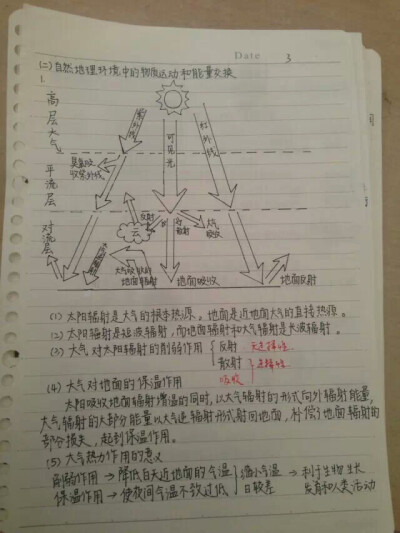 Date 3
(二)自然地理环境中的物质运动和能量交换
1.
高层大气
紫外线
可见光
红外线
臭氧吸
收紫外线
平流层
反射
云
散射
大气
吸收
对流层
大气吸收
地面辐射
地面吸收
地面反射
(1) 太阳辐射是大气的根本热源。地面是近地面大气的直接热源。
(2) 太阳辐射是短波辐射,而地面辐射和大气辐射是长波辐射。
(3) 大气对太阳辐射的削弱作用
反射 无选择性
散射 选择性
吸收
(4) 大气对地面的保温作用
太阳吸收地面辐射增温的同时,以大气辐射的形式向外辐射能量,
大气辐射的大部分能量以大气逆辐射形式射回地面,补偿了地面辐射的
部分损失,起到保温作用。
(5) 大气热力作用的意义
削弱作用→降低白天近地面的气温 缩小气温 → 利于生物生长
保温作用→使夜间气温不致过低 日较差 发育和人类活动